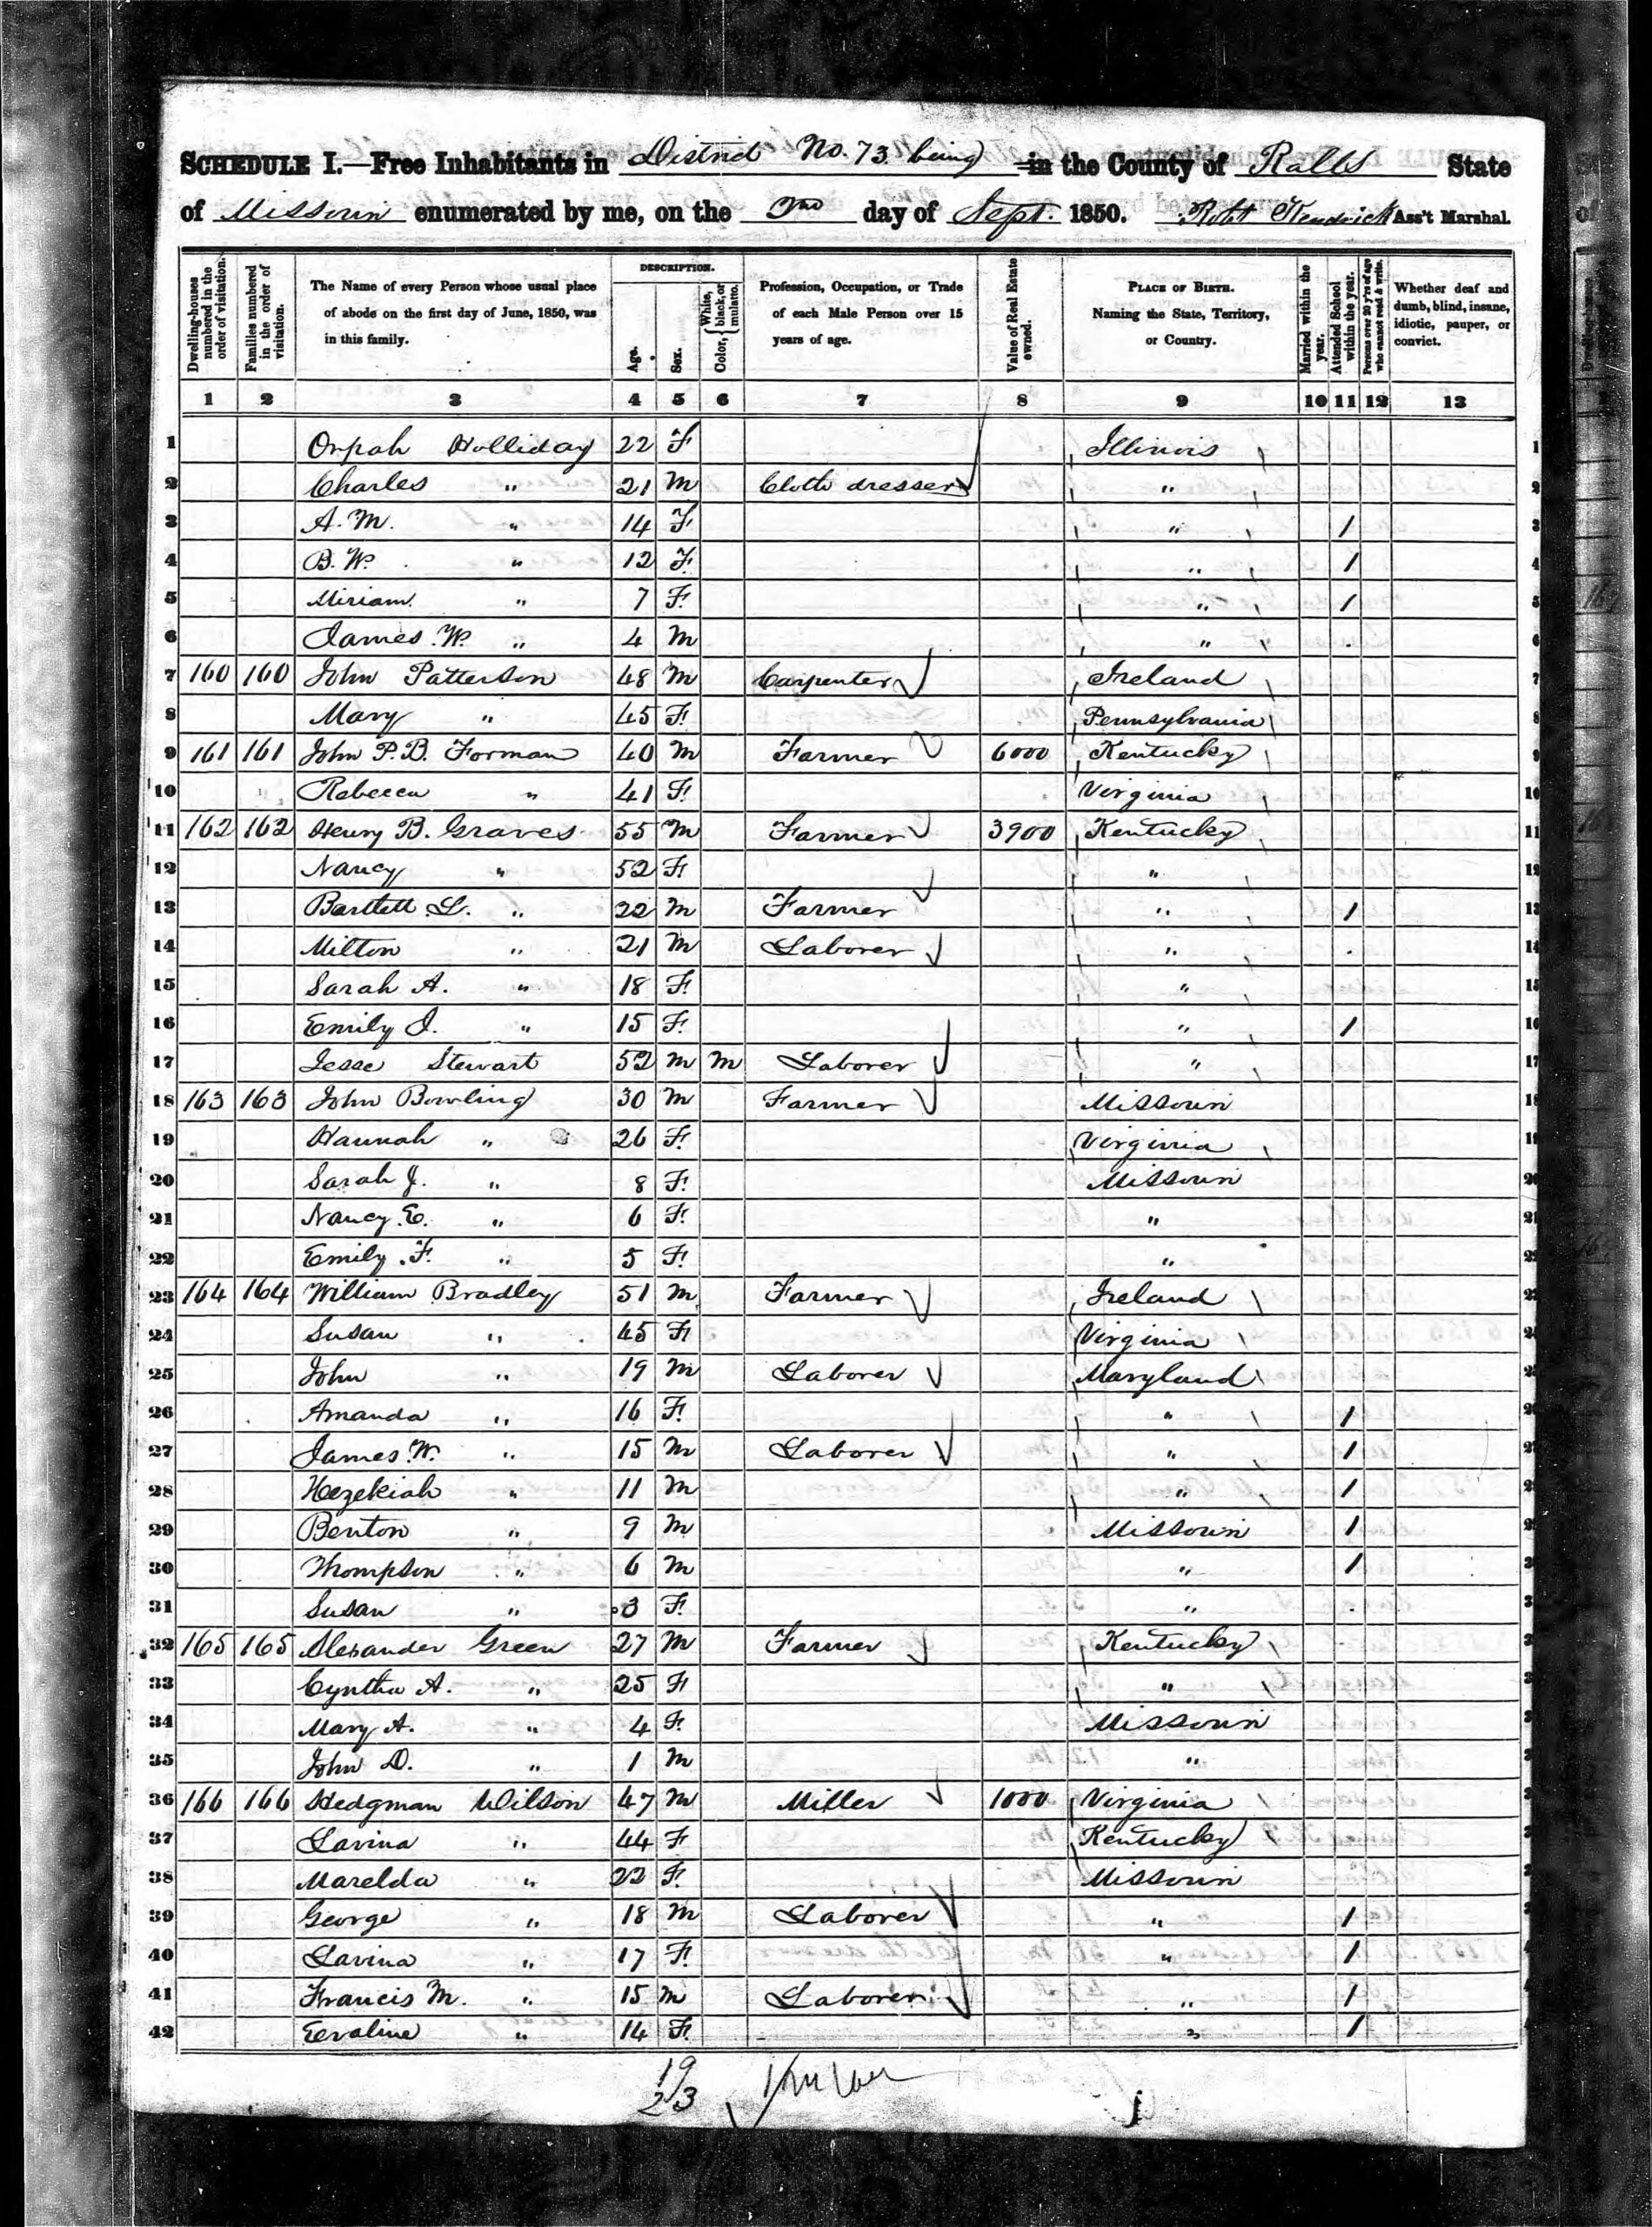 SCHEDULE I.—Free Inhabitants in District No. 73 being in the County of Ralls State
of Missouri enumerated by me, on the 2nd day of Sept. 1850. Robt Kendrick Ass't Marshal.
Dwelling-houses numbered in the order of visitation.
Families numbered in the order of visitation.
The Name of every Person whose usual place of abode on the first day of June, 1850, was in this family.
DESCRIPTION.
Age.
Sex.
Color, White, black, or mulatto.
Profession, Occupation, or Trade of each Male Person over 15 years of age.
Value of Real Estate owned.
PLACE OF BIRTH. Naming the State, Territory, or Country.
Married within the year.
Attended School within the year.
Persons over 20 y'rs of age who cannot read & write.
Whether deaf and dumb, blind, insane, idiotic, pauper, or convict.
1 2 3 4 5 6 7 8 9 10 11 12 13
1 Orpah Holliday 22 F Illinois 1
2 Charles " 21 M Cloth dresser " 2
3 A. M. " 14 F " / 3
4 B. W. " 12 F " / 4
5 Miriam " 7 F " / 5
6 James W. " 4 M " 6
7 160 160 John Patterson 48 M Carpenter Ireland 7
8 Mary " 45 F Pennsylvania 8
9 161 161 John P. B. Forman 40 M Farmer 6000 Kentucky 9
10 Rebecca " 41 F Virginia 10
11 162 162 Henry B. Graves 55 M Farmer 3900 Kentucky 11
12 Nancy " 52 F " 12
13 Bartlett L. " 22 M Farmer " / 13
14 Milton " 21 M Laborer " 14
15 Sarah A. " 18 F " 15
16 Emily J. " 15 F " / 16
17 Jesse Stewart 52 M M Laborer " 17
18 163 163 John Bowling 30 M Farmer Missouri 18
19 Hannah " 26 F Virginia 19
20 Sarah J. " 8 F Missouri 20
21 Nancy E. " 6 F " 21
22 Emily F. " 5 F " 22
23 164 164 William Bradley 51 M Farmer Ireland
24 Susan " 45 F Virginia
25 John " 19 M Laborer Maryland
26 Amanda " 16 F " /
27 James W. " 15 M Laborer " /
28 Hezekiah " 11 M " /
29 Benton " 9 M Missouri /
30 Thompson " 6 M " /
31 Susan " 3 F "
32 165 165 Alexander Green 27 M Farmer Kentucky
33 Cyntha A. " 25 F "
34 Mary A. " 4 F Missouri
35 John D. " 1 M "
36 166 166 Hedgman Wilson 47 M Miller 1000 Virginia
37 Lavina " 44 F Kentucky
38 Marelda " 22 F Missouri
39 George " 18 M Laborer " /
40 Lavina " 17 F " /
41 Francis M. " 15 M Laborer " /
42 Eevaline " 14 F " /
19
23